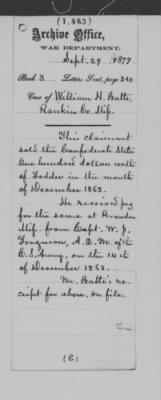 (1,483)
Archive Office,
WAR DEPARTMENT.
Sept. 29 1877.
Book 3 Letters Sent, page 242
Case of William H. Batte,
Rankin Co. Mip.
This claimant
sold the Confederate States
One hundred dollars worth
of Fodder in the month
of December 1863.
He received pay
for the same at Brandon
Mip. from Capt. W. J.
Ferguson, A. Q. M. of the
C. S. Army, on the 14th
of December 1863.
Mr. Batte's re-
ceipt for above, on file.
(C)